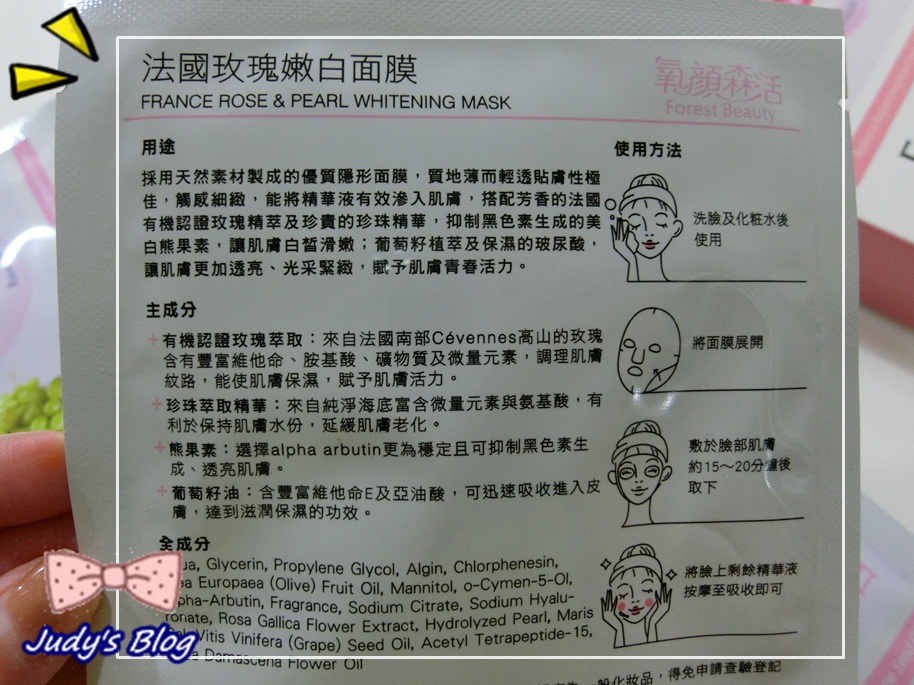 法國玫瑰嫩白面膜
FRANCE ROSE & PEARL WHITENING MASK
氧顏森活
Forest Beauty
用途
採用天然素材製成的優質隱形面膜，質地薄而輕透貼膚性極
佳，觸感細緻，能將精華液有效滲入肌膚，搭配芳香的法國
有機認證玫瑰精萃及珍貴的珍珠精華，抑制黑色素生成的美
白熊果素，讓肌膚白皙滑嫩；葡萄籽植萃及保濕的玻尿酸，
讓肌膚更加透亮、光采緊緻，賦予肌膚青春活力。
主成分
+有機認證玫瑰萃取：來自法國南部Cévennes高山的玫瑰
含有豐富維他命、胺基酸、礦物質及微量元素，調理肌膚
紋路，能使肌膚保濕，賦予肌膚活力。
+珍珠萃取精華：來自純淨海底富含微量元素與氨基酸，有
利於保持肌膚水份，延緩肌膚老化。
+熊果素：選擇alpha arbutin更為穩定且可抑制黑色素生
成、透亮肌膚。
+葡萄籽油：含豐富維他命E及亞油酸，可迅速吸收進入皮
膚，達到滋潤保濕的功效。
全成分
Glycerin, Propylene Glycol, Algin, Chlorphenesin,
Europaea (Olive) Fruit Oil, Mannitol, o-Cymen-5-Ol,
Arbutin, Fragrance, Sodium Citrate, Sodium Hyalu-
ronate, Rosa Gallica Flower Extract, Hydrolyzed Pearl, Maris
Vitis Vinifera (Grape) Seed Oil, Acetyl Tetrapeptide-15,
Damascena Flower Oil
一般化妝品，得免申請查驗登記
使用方法
洗臉及化粧水後
使用
將面膜展開
敷於臉部肌膚
約15～20分鐘後
取下
將臉上剩餘精華液
按摩至吸收即可
Judy's Blog